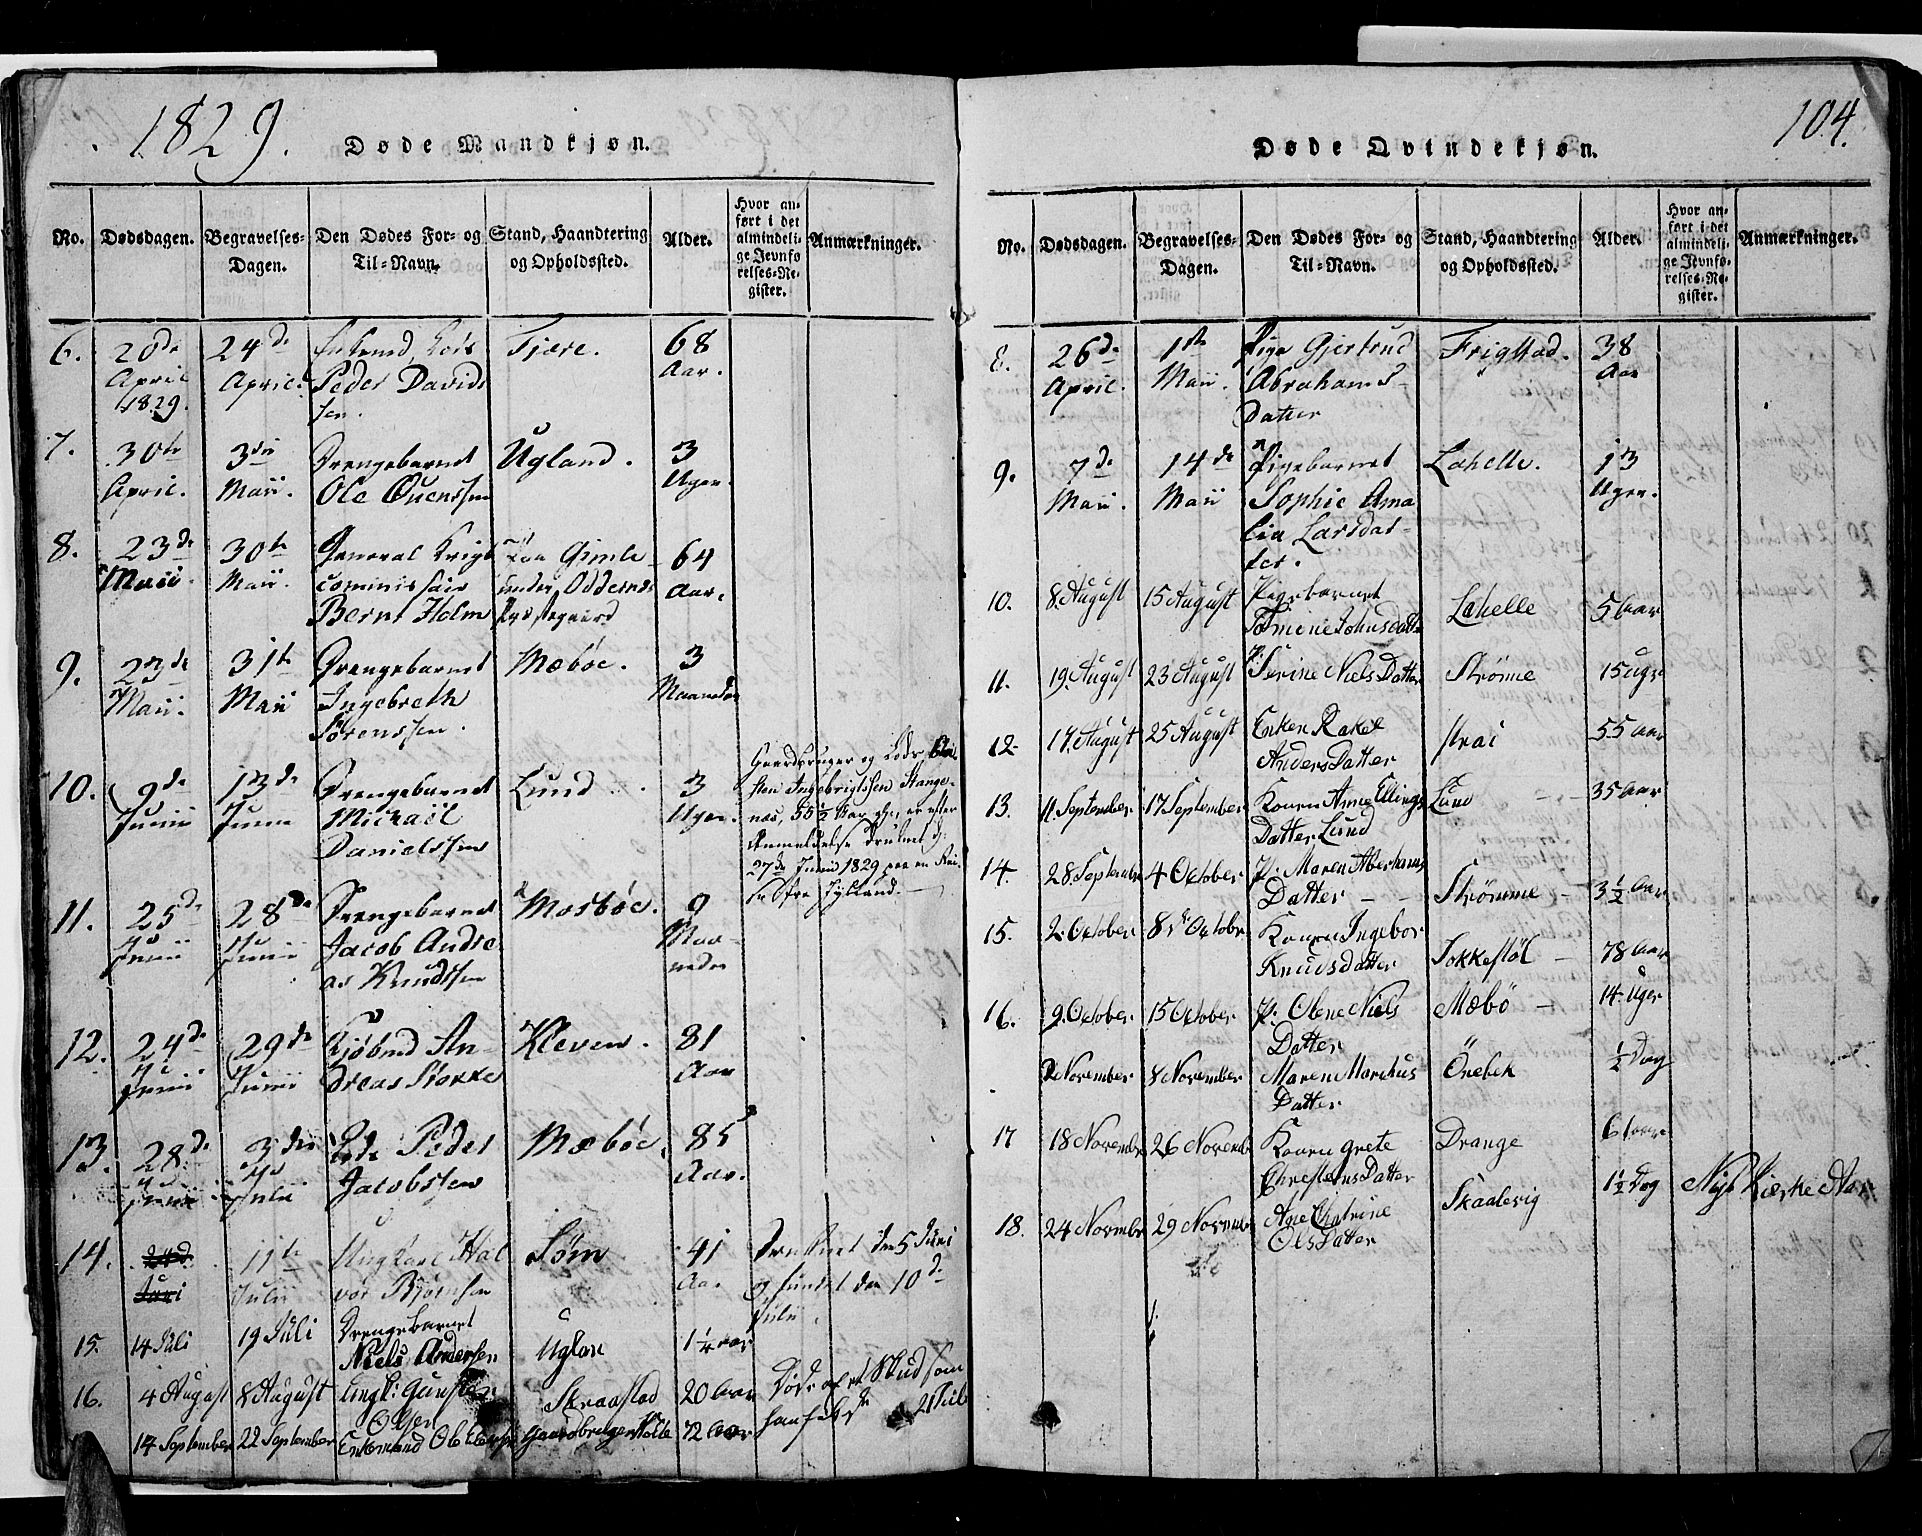 1829.
Døde Mandkjøn.
No.
Dødsdagen.
Begravelses-
Dagen.
Den Dødes For- og
Til-Navn.
Stand, Haandtering
og Opholdssted.
Alder.
Hvor an-
ført i det
almindeli-
ge Jevnfø
relses-Re-
gister.
Anmærkninger.
6.
20de
April
1829.
24de
April.
Peder Davids
sen.
Fjære.
68
Aar.
7.
30te
April.
3die
Maii.
Drengebarnet
Ole Ouenssen
Ugland.
3
Uger.
8.
23de
Maii.
30te
Maii.
General Krigs
commissair
Bernt Holm
Gimle
under Oddernes
Præstegaard
64
Aar.
9.
23de
Maii.
31te
Maii
Drengebarnet
Ingebreth
Sørenssen.
Mæbøe.
3
Maaneder
10.
9de
Junii
13de
Junii
Drengebarnet
Michaël
Danielssen
Lund
3
Uger.
Gaardbruger og Lods
Ingebrigtssen Stange-
næs, 55½ Aar gl., er efter
Anmeldelse druknet d:
27de Junii 1829 paa en Rei-
se fra Jylland.
11.
25de
Junii
28de
Junii
Drengebarnet
Jacob Andre
as Knudssen
Mosbøe.
9
Maa-
neder
12.
24de
Junii
29de
Junii
An-
dreas Stokke
Kleven.
81
Aar
13.
28de
Junii
3die
Julii
Peder
Jacobssen
Mæbøe.
85
Aar.
14.
24de
Juni
11te
Julii
Ungkarl Hal
vor Bjørnsen
Søm
41
Aar
Druknet den 5 Juni
og funden den 10de
Julii.
15.
14 Juli
19 Juli
Drengebarnet
Niels Andersen
Uglan
1¼ Aar
16.
4 August
8 August
Ungk: Gunster
Olsen
Skraastad
20 Aar
Døde af et Skud som
han fik d 21 Juli
14 September
22 September
Enkemand Ole
Gaardbruger
72 Aar
104.
Døde Qvindekjøn.
No.
Dødsdagen.
Begravelses-
Dagen.
Den Dødes For- og
Til-Navn.
Stand, Haandtering
og Opholdssted.
Alder.
Hvor an-
ført i det
almindeli-
ge Jevnfø-
relses-Re-
gister.
Anmærkninger.
8.
26de
April.
1ste
Maii.
Pige Gjertrud
Abrahams-
Datter
Frigstad.
38
Aar
9.
7de
Maii.
14de
Maii
Pigebarnet
Sophie Ama
lia Larsdat-
ter.
Lahelle.
13
Uger.
10.
8. August
15 August
Pigebarnet
Tomine Johnsdatter
Lahelle
5 Aar
11.
19. August
23 August
P: Serine Niels Datter
Strömme
15 Uger
12
17. August
25 August
Enken Rakel
Anders Datter
Strai
55 Aar
13.
11. September
17 September
Konen Anne Ellings
Datter Lund
Lund
35 Aar
14.
28. September
4 October
P: Maren Aberhams
Datter - -
Strömme -
3½ Aar
15.
2. October
8de October
Konen Ingebor
Knudsdatter
Sokkestöl -
78 Aar
16.
9. October
15 October
P: Olene Niels
Datter
Mæbö -
14 Uger
2 November
8 November
Maren Marchus
Datter
Önebek
½ Dag
17
18 Novembr
26 Novembr
Konen grete
Christens Datter
Drange
6 Aar
18.
24 Novembr
29 Novembr
Ane Chatrine
Ols Datter
Skaalevig
1½ Dag